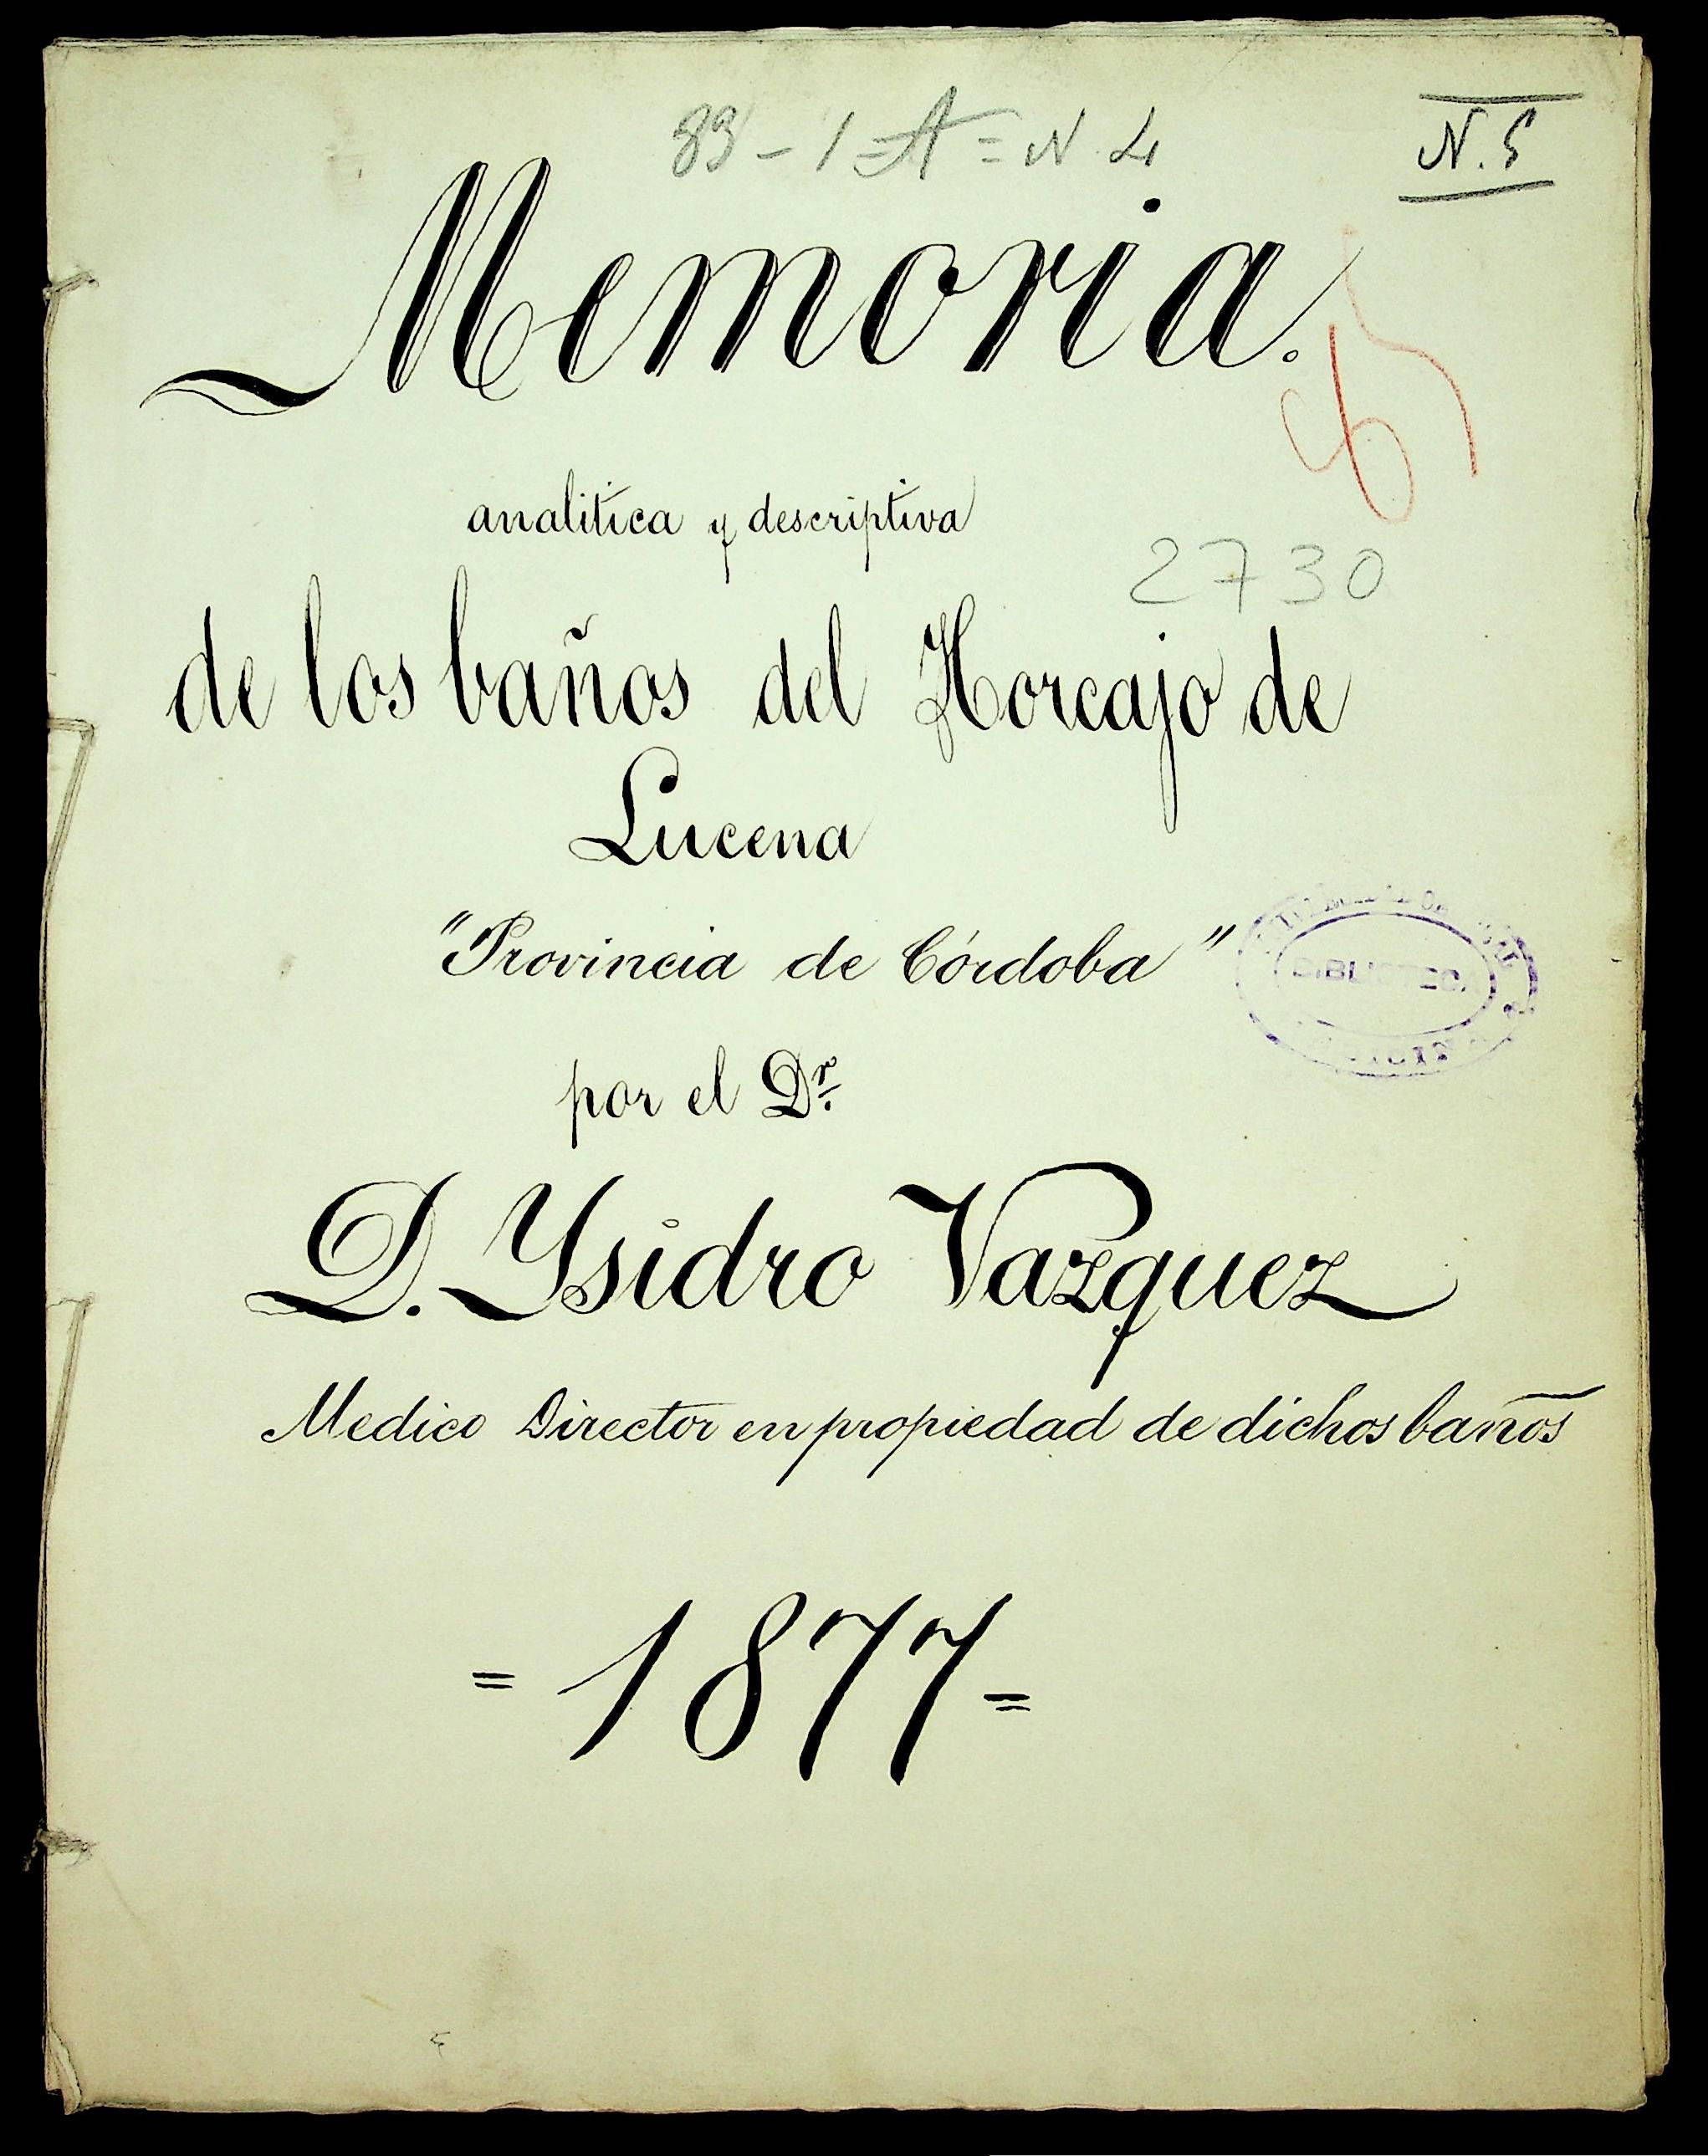 83-1=A=N.4
N.5
Memoria.
85
analitica y descriptiva
2730
de los baños del Horcajo de
Lucena
"Provincia de Córdoba"
BIBLIOTECA
por el Dr.
D. Ysidro Vazquez
Medico Director en propiedad de dichos baños
=1877=